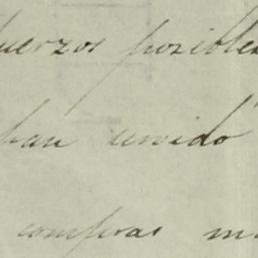 uerzos posibles
han servido
compras m